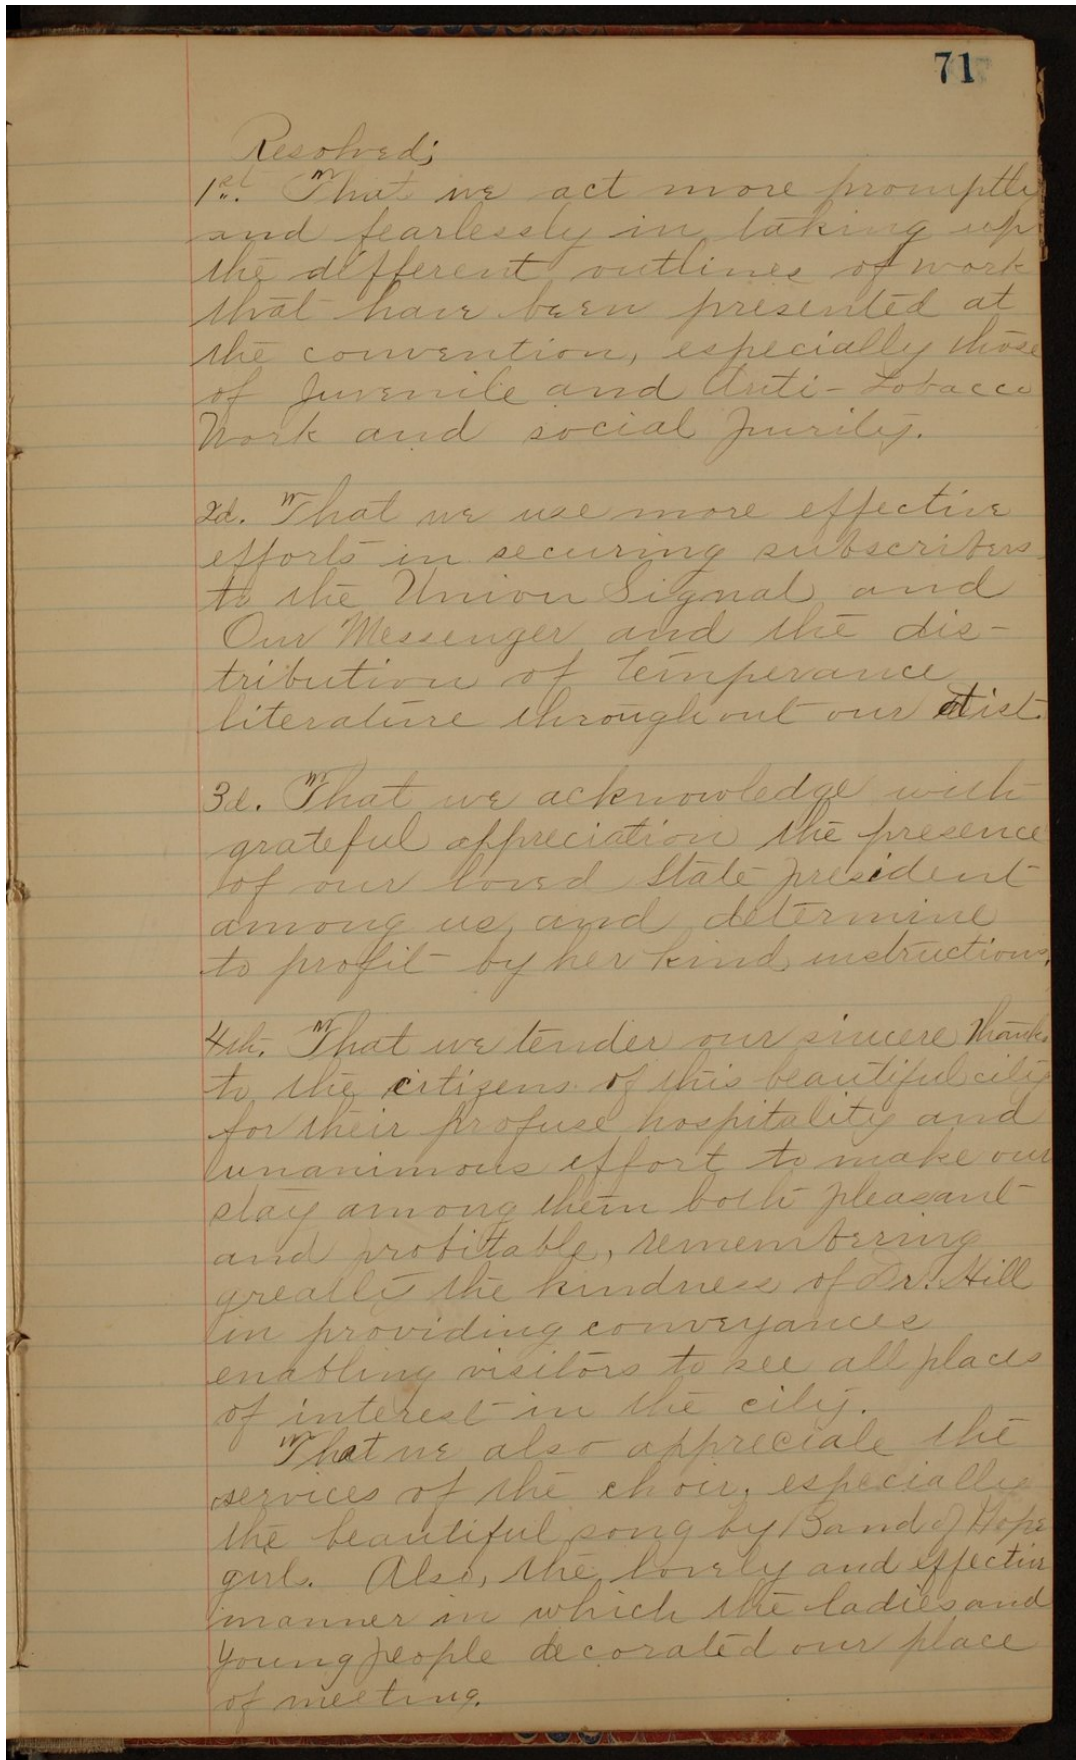 71
Resolved;
1st. That we act more promptly
and fearlessly in taking up
the different outlines of work
that have been presented at
the convention, especially those
of Juvenile and Anti-Tobacco
Work and social purity.
2d. That we use more effective
efforts in securing subscribers
to the Union Signal and
Our Messenger and the dis-
tribution of temperance
literature throughout our dist.
3d. That we acknowledge with
grateful appreciation the presence
of our loved State president
among us, and determine
to profit by her kind instructions.
4th. That we tender our sincere thanks
to the citizens of this beautiful city
for their profuse hospitality and
unanimous effort to make our
stay among them both pleasant
and profitable, remembering
greatly the kindness of Dr. Hill
in providing conveyances
enabling visitors to see all places
of interest in the city.
That we also appreciate the
services of the choir, especially
the beautiful song by Band of Hope
girls. Also, the lovely and effective
manner in which the ladies and
young people decorated our place
of meeting.